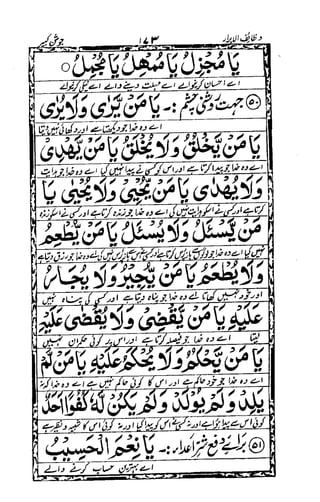 وظائف الابرار ۱۷۳ جوشن کبیر
يَا مُجْزِلُ يَا مُمْهِلُ يَا مُجْمِلُ
اے احسان کرنیوالے اے مہلت دینے والے اے نیکی کرنیوالے
(۵۰) جہت روشنی چشم :- يَا مَنْ يَّرٰى وَلَا يُرٰى
اے وہ خدا جو دیکھتا ہے اور دکھائی نہیں دیتا
يَا مَنْ يَّخْلُقُ وَلَا يُخْلَقُ يَا مَنْ يَّهْدِىْ
اے وہ خدا جو پیدا کرتا ہے اور اس کو کسی نے پیدا نہیں کیا اے وہ خدا جو ہدایت
وَلَا يُهْدٰى يَا مَنْ يُّحْيِىْ وَلَا يُحْيٰى يَا
کرتا ہے اور کسی نے اسکو ہدایت نہیں کی اے وہ خدا جو زندہ کرتا ہے اور کسی نے اسکو زندہ
مَنْ يَّسْئَلُ وَلَا يُسْئَلُ يَا مَنْ يُّطْعِمُ
نہیں کیا اے وہ خدا جو
وَلَا يُطْعَمُ يَا مَنْ يُّجِيْرُ وَلَا يُجَارُ
اور خود نہیں کھاتا اے وہ خدا جو پناہ دیتا ہے اور کسی کی پناہ نہیں
عَلَيْهِ يَا مَنْ يَّقْضِىْ وَلَا يُقْضٰى عَلَيْهِ
لیتا اے وہ خدا جو فیصلہ کرتا ہے اور اس پر کوئی حکمران نہیں
يَا مَنْ يَّحْكُمُ وَلَا يُحْكَمُ عَلَيْهِ يَا مَنْ لَّمْ
اے وہ خدا جو خود حاکم ہے اور اس کا کوئی حاکم نہیں ہے اے وہ خدا کہ نہ
يَلِدْ وَلَمْ يُوْلَدْ وَلَمْ يَكُنْ لَّهٗ كُفُوًا اَحَدٌ
کوئی اس سے پیدا ہوا ہے اور نہ کسی نے اس کو پیدا کیا اور نہ کوئی اس کا شبیہ و نظیر ہے
(۵۱) برائے دفع شر اعداء :- يَا نِعْمَ الْحَسِيْبُ
اے بہترین حساب کرنے والے